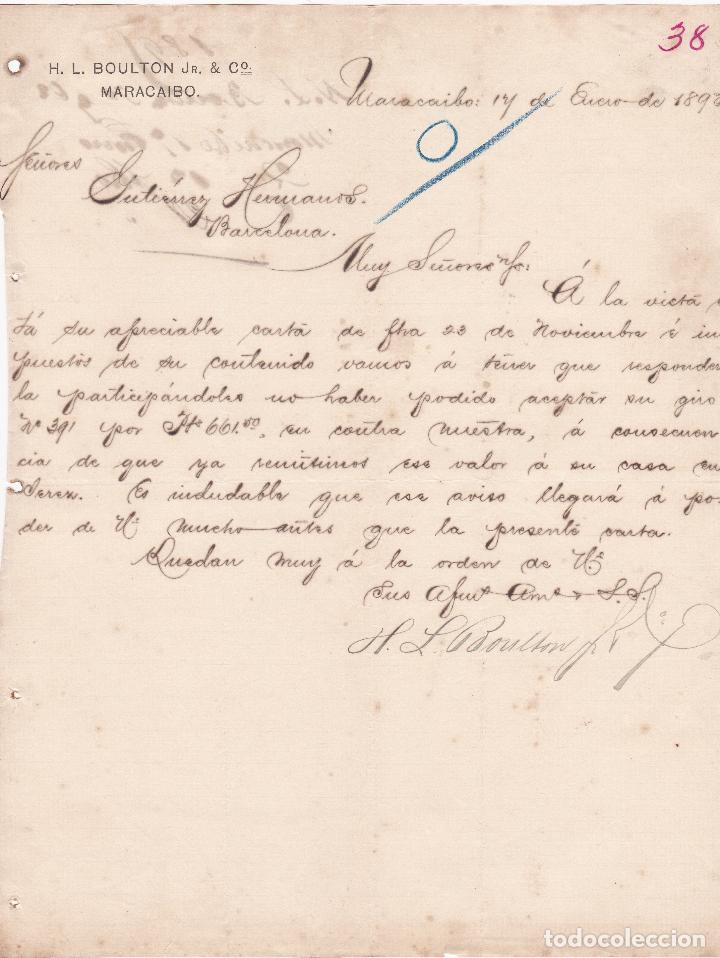 38
H. L. BOULTON JR. & CO.
MARACAIBO.
Maracaibo: 17 de Enero de 189
Señores
Gutiérrez Hermanos.
Barcelona.
Muy Señores ntros:
Á la vista
su apreciable carta de fha 23 de Noviembre é im
puestos de su contenido vamos á tener que responder
la participándoles no haber podido aceptar su giro
Nº 391 por Pts 661.00, en contra nuestra, á consecuen
cia de que ya remitimos ese valor á su casa en
Jerez. Es indudable que ese aviso llegará á po-
der de Us mucho antes que la presente carta.
Quedan muy á la orden de Us
Sus Afmos Ams S.S.
H. L. Boulton Jr & Co
todocoleccion